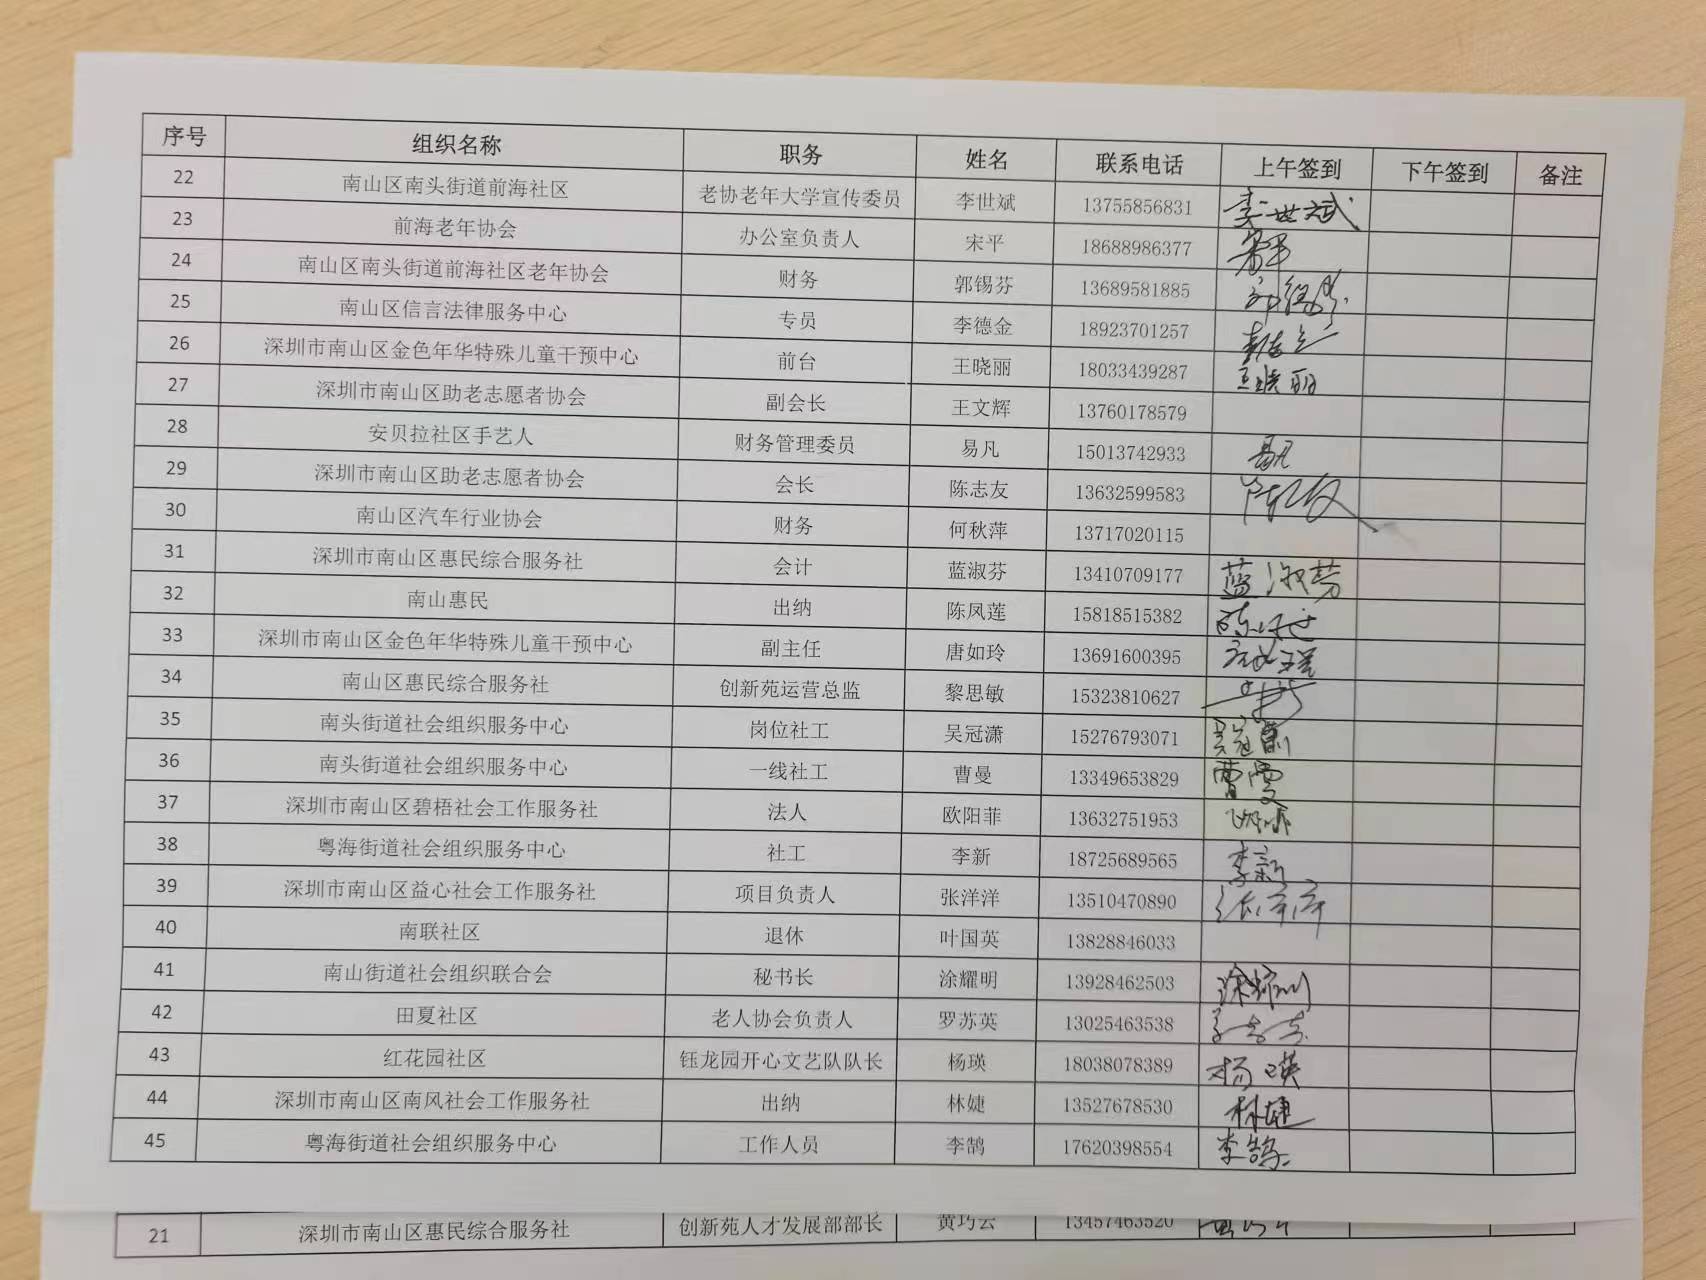 序号 组织名称 职务 姓名 联系电话 上午签到 下午签到 备注
22 南山区南头街道前海社区 老协老年大学宣传委员 李世斌 13755856831 李世斌
23 前海老年协会 办公室负责人 宋平 18688986377
24 南山区南头街道前海社区老年协会 财务 郭锡芬 13689581885
25 南山区信言法律服务中心 专员 李德金 18923701257
26 深圳市南山区金色年华特殊儿童干预中心 前台 王晓丽 18033439287 王晓丽
27 深圳市南山区助老志愿者协会 副会长 王文辉 13760178579
28 安贝拉社区手艺人 财务管理委员 易凡 15013742933 易凡
29 深圳市南山区助老志愿者协会 会长 陈志友 13632599583
30 南山区汽车行业协会 财务 何秋萍 13717020115
31 深圳市南山区惠民综合服务社 会计 蓝淑芬 13410709177 蓝淑芬
32 南山惠民 出纳 陈凤莲 15818515382
33 深圳市南山区金色年华特殊儿童干预中心 副主任 唐如玲 13691600395
34 南山区惠民综合服务社 创新苑运营总监 黎思敏 15323810627
35 南头街道社会组织服务中心 岗位社工 吴冠潇 15276793071
36 南头街道社会组织服务中心 一线社工 曹曼 13349653829 曹曼
37 深圳市南山区碧梧社会工作服务社 法人 欧阳菲 13632751953
38 粤海街道社会组织服务中心 社工 李新 18725689565 李新
39 深圳市南山区益心社会工作服务社 项目负责人 张洋洋 13510470890 张洋洋
40 南联社区 退休 叶国英 13828846033
41 南山街道社会组织联合会 秘书长 涂耀明 13928462503 涂耀明
42 田夏社区 老人协会负责人 罗苏英 13025463538
43 红花园社区 钰龙园开心文艺队队长 杨瑛 18038078389 杨瑛
44 深圳市南山区南风社会工作服务社 出纳 林婕 13527678530 林婕
45 粤海街道社会组织服务中心 工作人员 李鹄 17620398554 李鹄
21 深圳市南山区惠民综合服务社 创新苑人才发展部部长 黄巧云 13457463520